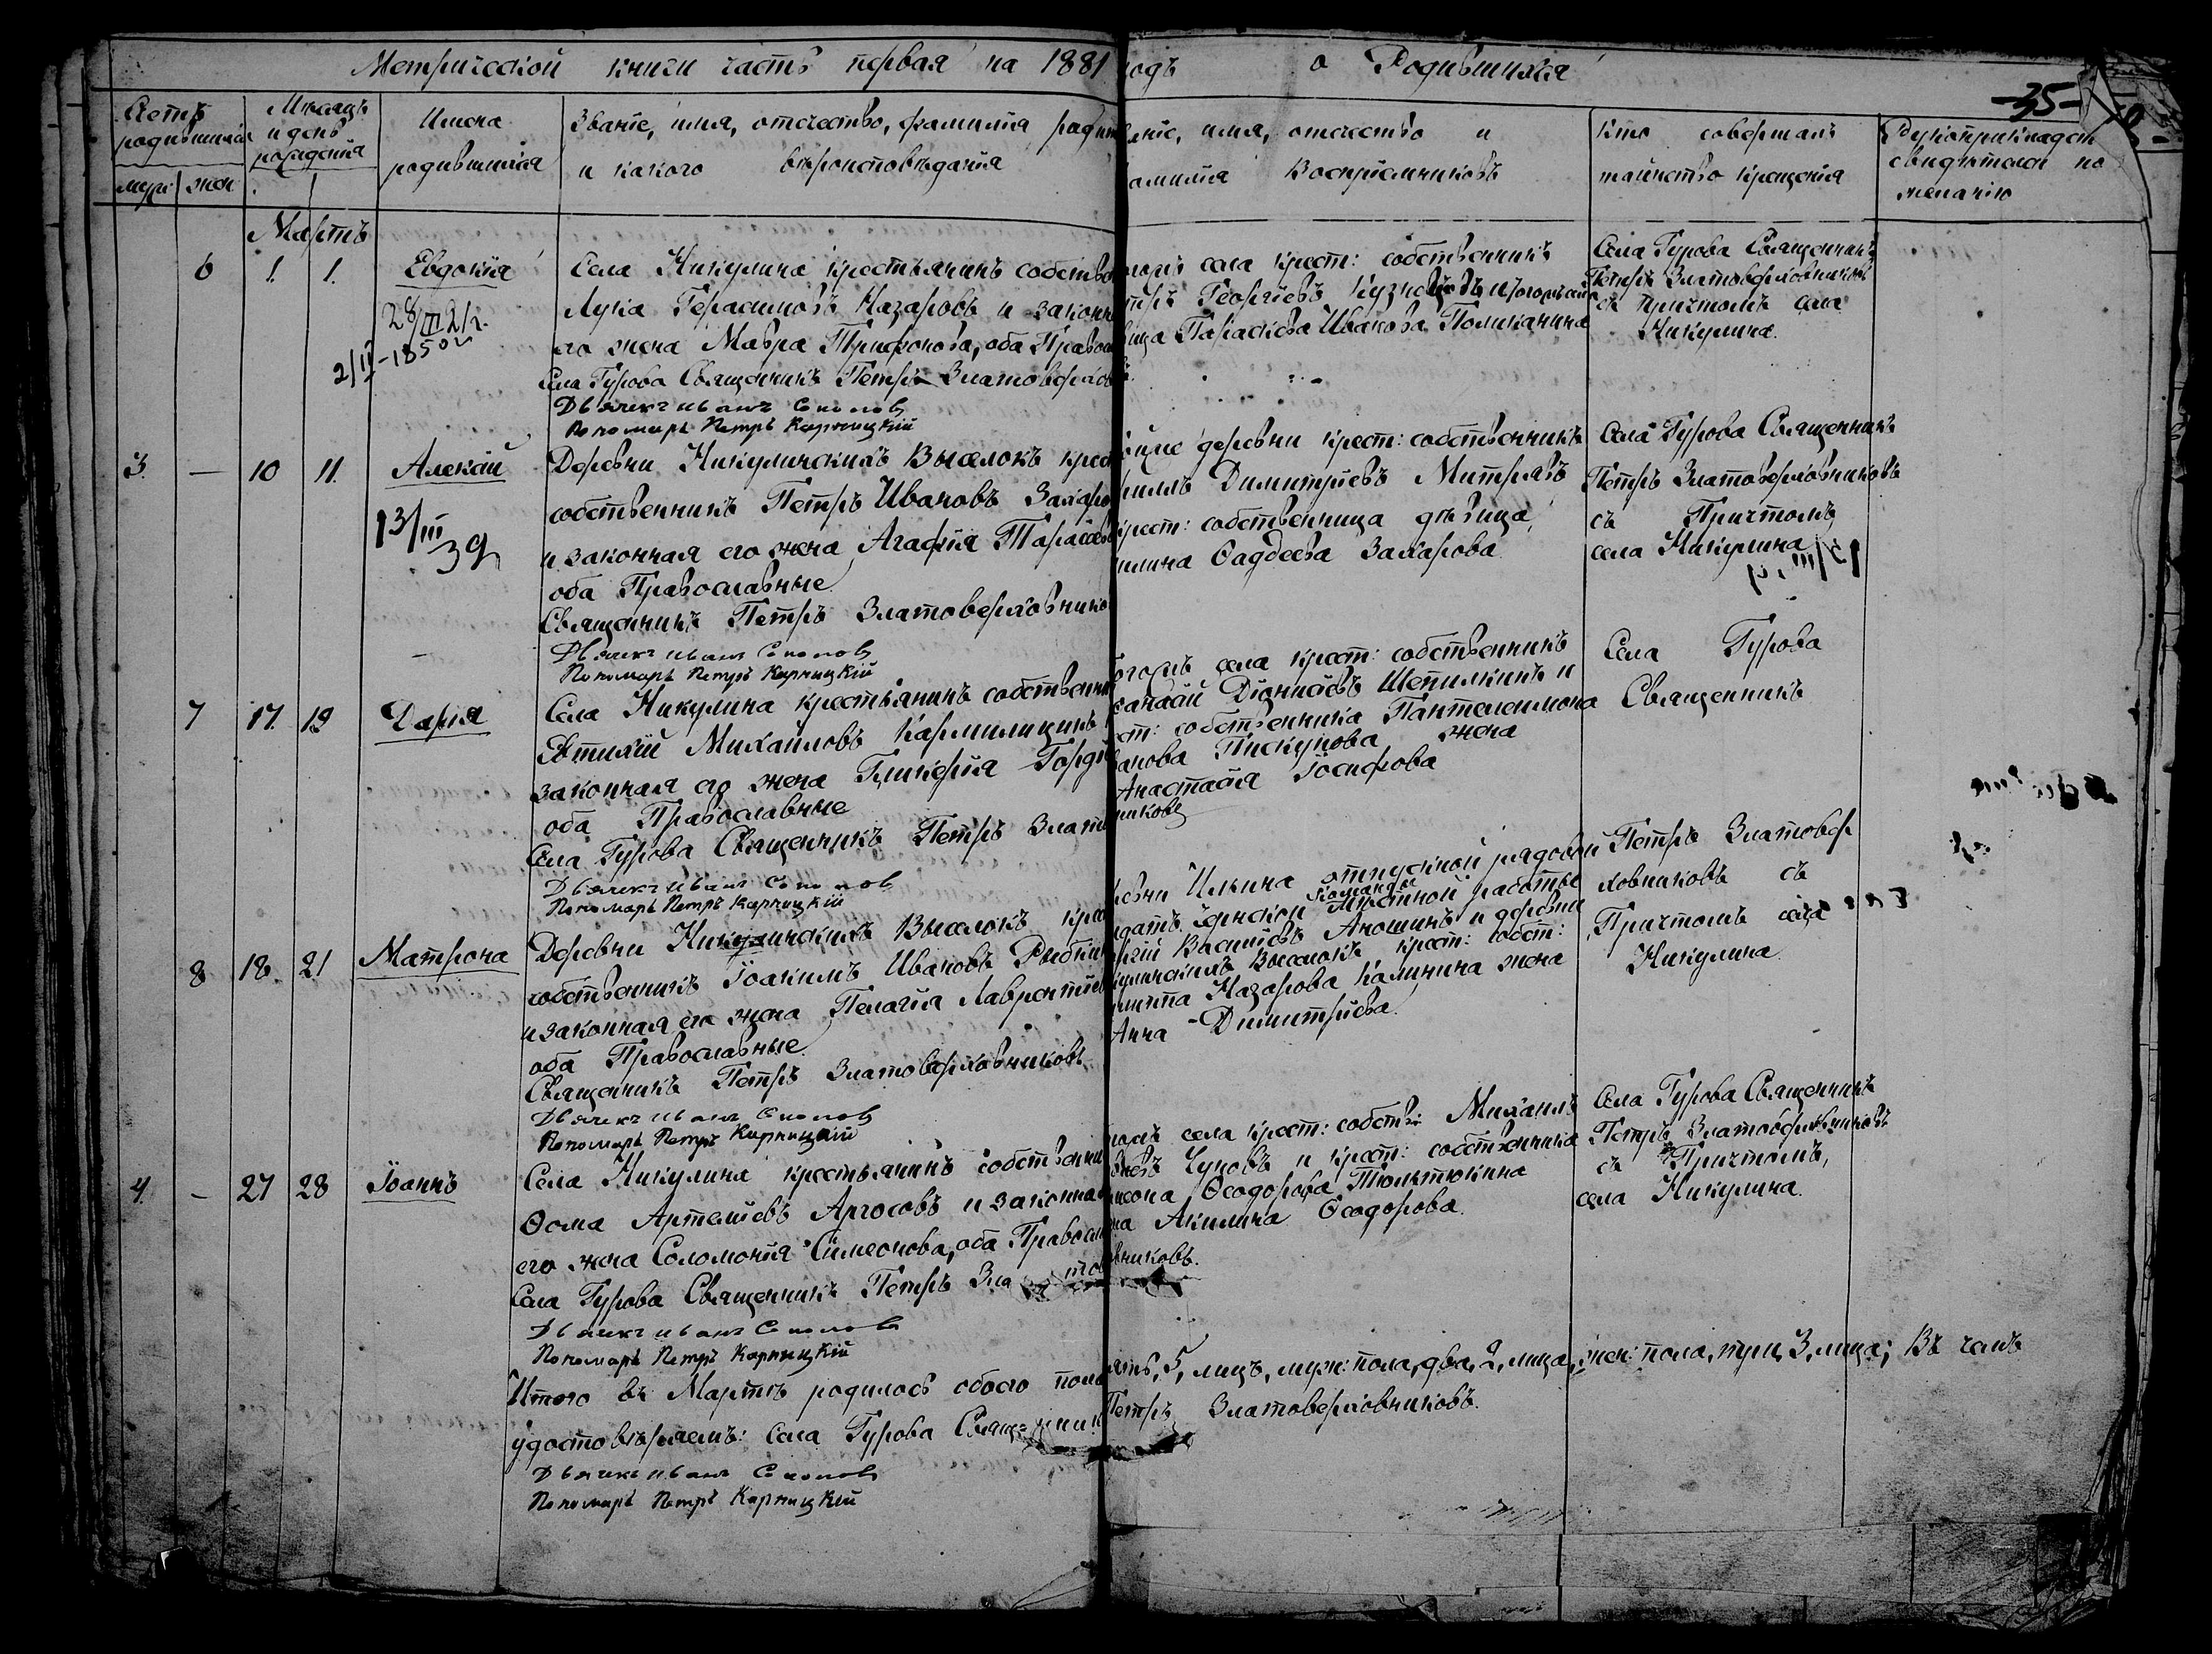 Метрической книги часть первая на 1881 годъ о Родившихся
-35-
Счетъ родившихся
муж: жен
Мѣсяцъ и день рожденія
Имена родившихся
Званіе, имя, отчество, фамилія родит
и какого вѣроисповѣданія
аніе, имя, отчество и
амилія Воспріемниковъ
кто совершалъ
таинство крещенія
Рукоприкладст
свидѣтелей по
желанію
Мартъ
6 1. 1. Евдокія
2/IV-1850
Села Никулина крестьянинъ собстве
Лука Герасимовъ Назаровъ и законн
его жена Мавра Трифонова, оба Правос
Села Гурова Священникъ Петръ Златоверхов
Дьячекъ Иванъ Соколовъ
Пономарь Петръ Карницкій
тогожъ села крест: собственникъ
етръ Георгіевъ Кузнецовъ и тогожъ села
вица Параскева Иванова Поликанина
Села Гурова Священникъ
Петръ Златоверховниковъ
съ причтомъ села
Никулина.
3. — 10 11. Алексѣй
13/III 39
Деревни Никулинскихъ Выселокъ крест
собственникъ Петръ Ивановъ Захаро
и законная его жена Агафія Тарасьев
оба Православные
Священникъ Петръ Златоверховнико
Дьячекъ Иванъ Соколовъ
Пономарь Петръ Карницкій
деревни крест: собственникъ
риллъ Димитріевъ Митряевъ
крест: собственница дѣвица
илина Фаддеева Захарова
Села Гурова Священникъ
Петръ Златоверховниковъ
съ Причтомъ
села Никулина
7 17. 19 Дарія
Села Никулина крестьянинъ собственни
Евтихій Михайловъ Кармилицинъ
законная его жена Гликерія Горді
оба Православные
Села Гурова Священникъ Петръ Злат
никовъ
Дьячекъ Иванъ Соколовъ
Пономарь Петръ Карницкій
огожъ села крест: собственникъ
анасій Діонисіевъ Шепилкинъ и
ест: собственника Пантелеимона
ванова Пискунова жена
Анастасія Іосифова
Села Гурова
Священникъ
8 18. 21 Матрона
Деревни Никулинскихъ Выселокъ крес
собственникъ Іоакимъ Ивановъ Рыбкин
и законная его жена Пелагія Лаврентіев
оба Православные.
Священникъ Петръ Златоверховниковъ
Дьячекъ Иванъ Соколовъ
Пономарь Петръ Карницкій
ревни Ильина отпускной рядовой
команды
мѣстной работы
ргій Васильевъ Аношинъ и деревни
кулинскихъ Выселокъ крест: собст:
Назарова Калинина жена
Анна Димитріева.
Петръ Златовер
ховниковъ съ
Причтомъ села
Никулина.
4. — 27 28 Іоаннъ
Села Никулина крестьянинъ собственни
Ѳома Артемьевъ Аргосовъ и законная
его жена Соломонія Симеонова, оба Правосл
Села Гурова Священникъ Петръ Златов
вниковъ.
Дьячекъ Иванъ Соколовъ
Пономарь Петръ Карницкій
гожъ села крест: собств: Михаилъ
Чуповъ и крест: собственника
Ѳеодорова Тюльтюкина
на Акилина Ѳеодорова.
Села Гурова Священникъ
Петръ Златоверховниковъ
съ Причтомъ,
села Никулина.
Итого въ Мартѣ родилось обоего пола пять, 5, лицъ, муж: пола, два, 2, лица, жен: пола, три, 3, лица; Въ чемъ
удостовѣряемъ: Села Гурова Священник Петръ Златоверховниковъ.
Дьячекъ Иванъ Соколовъ
Пономарь Петръ Карницкій